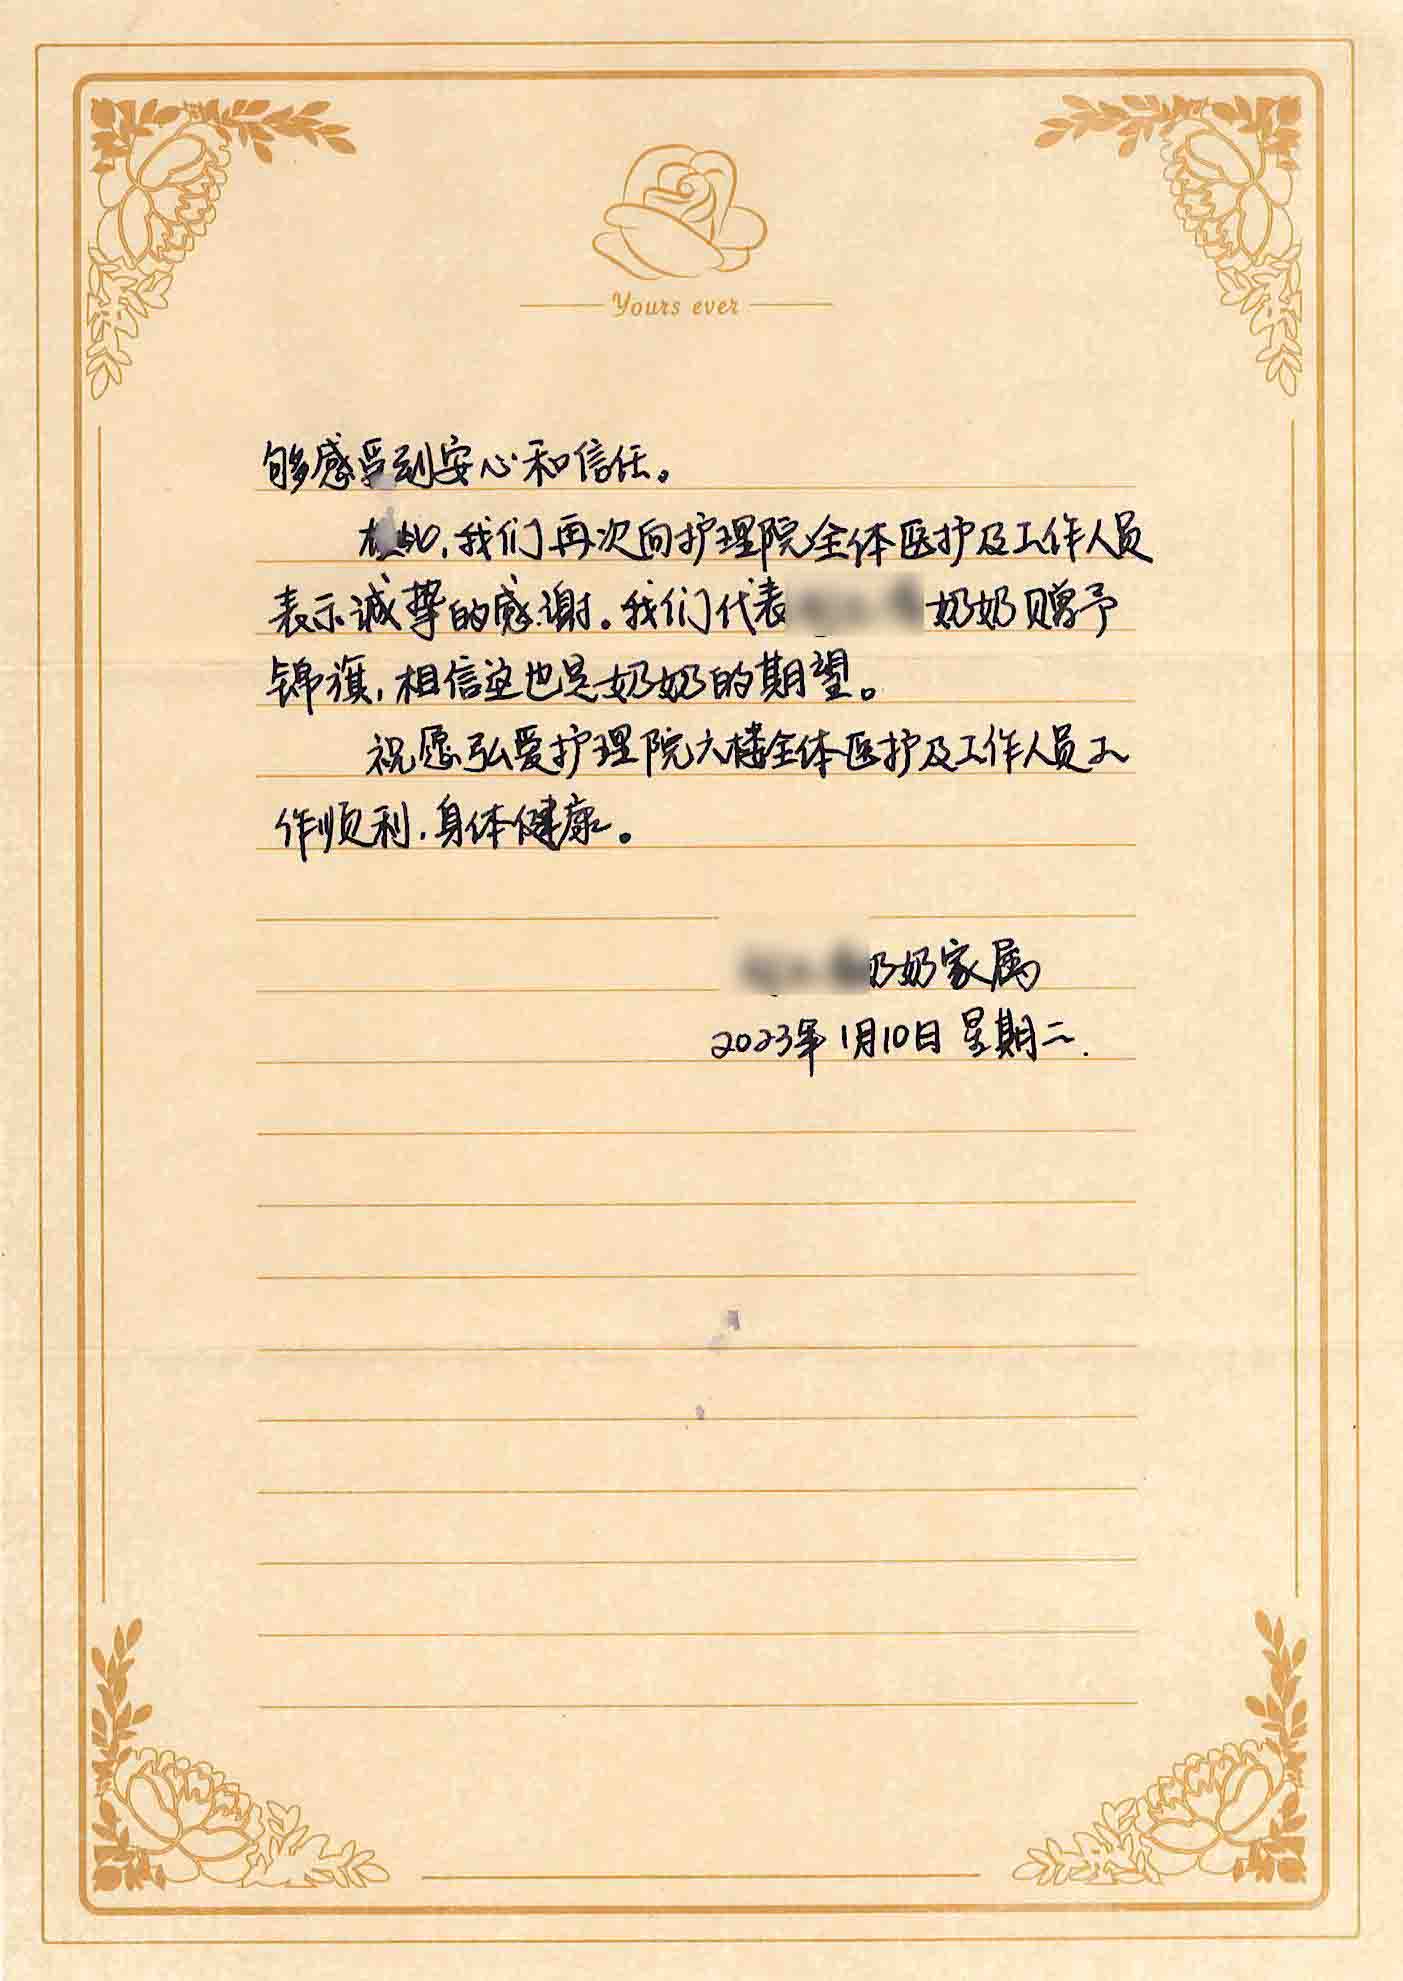 Yours ever
够感受到安心和信任。
在此，我们再次向护理院全体医护及工作人员
表示诚挚的感谢。我们代表奶奶赠予
锦旗，相信这也是奶奶的期望。
祝愿弘爱护理院六楼全体医护及工作人员工
作顺利，身体健康。
奶奶家属
2023年1月10日 星期二.